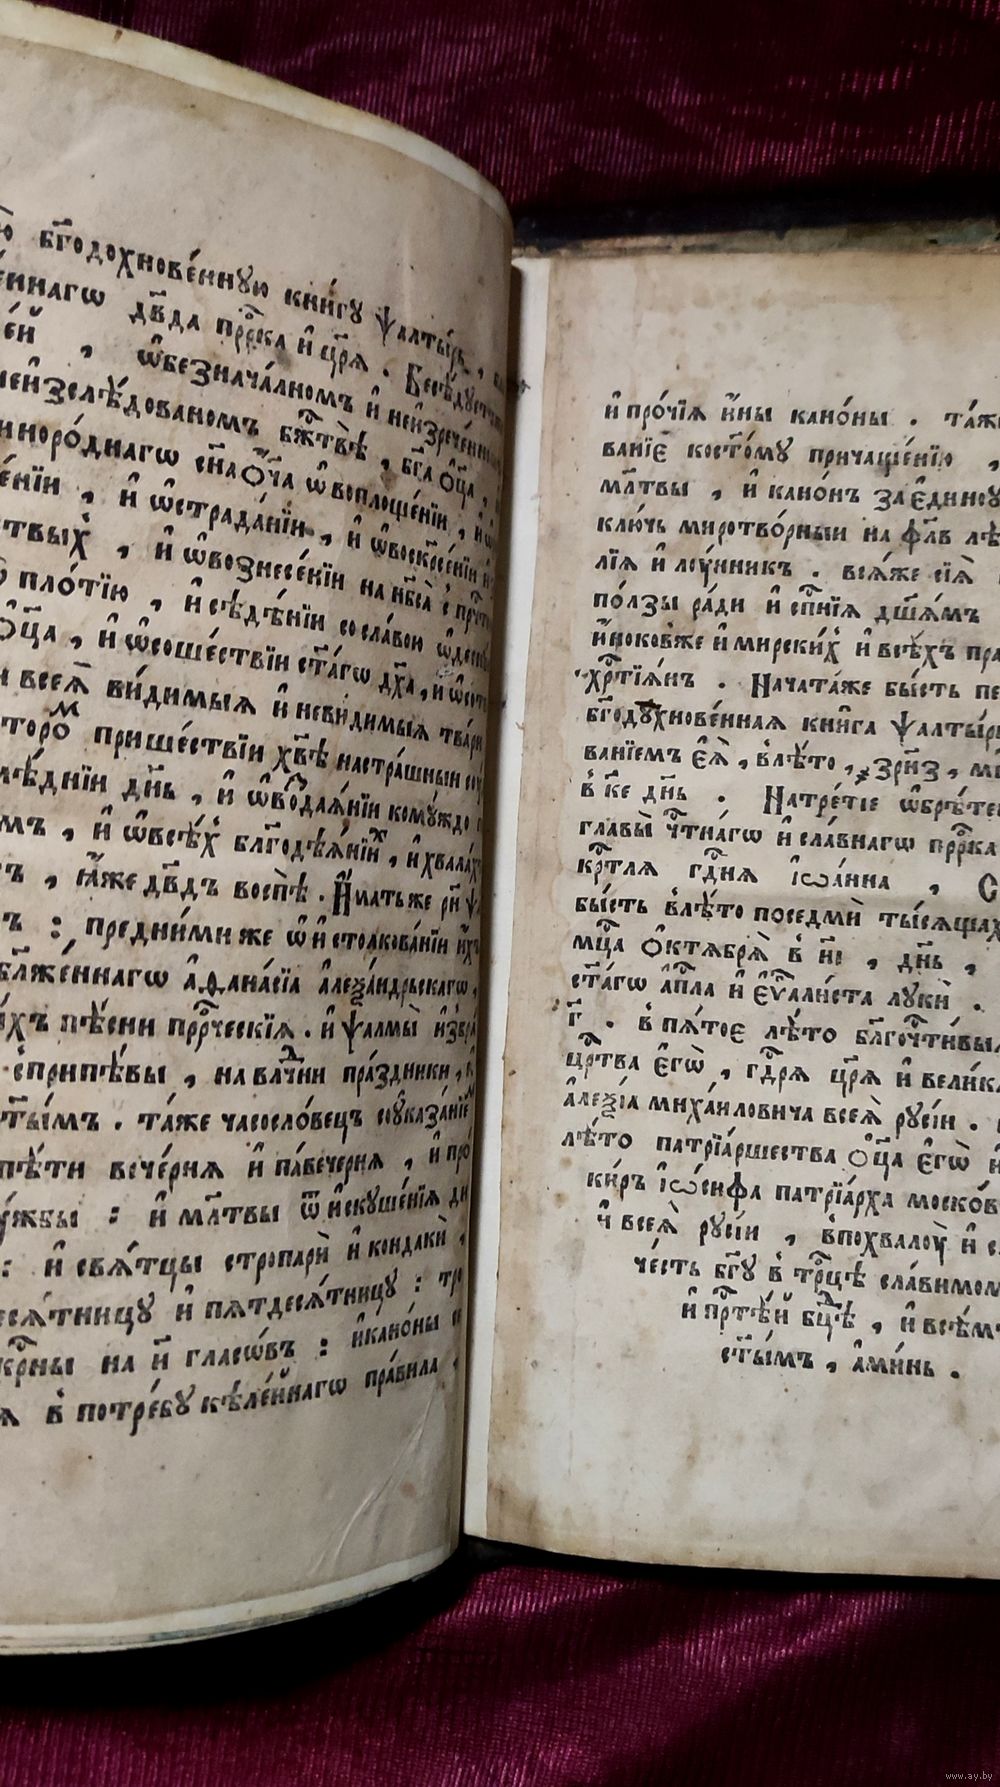 бг҃одохнове́нную кни́гу ѱалты́рь
еннагѡ дв҃да прⷪ҇рка и҆ цр҃ѧ . Бесѣ́дуетъ
ѡ҆безнача́лномъ и҆ неи҆зрече́нном
неи҆зслѣ́дованомъ бжⷭ҇твѣ , бг҃а ѻ҆ц҃а ,
норо́днагѡ сн҃а ѻ҆́ч҃а ѡ҆ воплоще́нїи ,
е́нїи , и҆ ѡ҆страда́нїи , и҆ ѡ҆воскрⷭ҇е́нїи
твых̾ , и҆ ѡ҆вознесе́нїи на нб҃са̀
пло́тїю , и҆ сѣдѣ́нїи со сла́вою
ѻ҆ц҃а , и҆ ѡ҆соше́ствїи ст҃а́гѡ дх҃а , и҆
всеѧ̀ ви́димыѧ и҆ неви́димыѧ тва́ри
торо́мъ прише́ствїи хв҃ѣ на стра́шныи
слѣ́днїи дн҃ь , и҆ ѡ҆во́здаѧ́нїи кому́ждо
мъ , и҆ ѡ҆всѣ́х̾ блг҃одѣѧ́нїи , и҆ хвала́хъ
ъ , ꙗ҆́же дв҃дъ воспѣ̀ . И҆́мать же рн҃
ъ : предни́ми же ѡ҆ и҆ столкова́нїи и҆́хъ
бл҃же́ннагѡ а҆ѳана́сїа а҆леѯа́ндрьскагѡ ,
хъ пѣ́сни прⷪ҇рческїѧ . и҆ ѱалмы̀
с̾припѣ́вы , на влⷣчни пра́здники ,
ст҃ы́мъ . та́же часосло́вецъ соу҆каза́нїемъ
пѣ́ти вече́рнѧ и҆ па́вечернѧ , и҆ про
у́жбы : и҆ мл҃твы ѿ и҆скуше́нїѧ
: и҆ свѧ́тцы стропари̂ и҆ кондаки̂ ,
есѧ́тницу и҆ пѧтдесѧ́тницу : тро
крⷭ҇ны на и҃ гласѡ́въ : и҆кано́ны
ѧ в̾ потре́бу кѣле́йнагѡ пра́вила ,
и҆ про́чїѧ и҆́ны кано́ны . та́же
ванїе̂ костⷪ҇му причаще́нїю ,
мл҃твы , и҆ кано́нъ за е҆диноу
клю́чь миротво́рныи на фл҃в лѣ
лїѧ и҆ лоу́нникъ . всѧ́же сїѧ̀
по́лзы ра́ди и҆ сп҃нїѧ дш҃ѧ́мъ
и҆́ноковже и҆ мирски́х̾ и҆ всѣ́хъ пра
хрⷭ҇тїѧ́нъ . Начата́же бы́сть
бг҃одухнове́ннаѧ кни̂га ѱалты́рь
ванїемъ е҆ѧ̀ , в̾лѣ́то , ҂зр҃н҃з ,
в̾ к҃е дн҃ь . На тре́тїе ѡ҆брѣ́те
главы̀ чⷭ҇тна́гѡ и҆ сла́внагѡ прⷪ҇рка
крⷭ҇тлѧ гⷭ҇днѧ і҆ѡа́нна ,
бы́сть в̾лѣ́то поседми̂ ты́сѧщахъ
мц҃а ѻ҆ктѧбрѧ̀ в̾ н҃і , дн҃ь ,
ст҃а́гѡ а҆пⷭ҇ла и҆ е҆ѵⷢ҇али́ста луки̂ .
г҃ . в̾ пѧ́тое лѣ́то блг҃очⷭ҇ти́вы
црⷭ҇тва е҆гѡ̀ , гдⷭ҇рѧ цр҃ѧ и҆ вели́ка
а҆леѯі́а миха́иловича всеѧ̀ русі́и .
лѣ́то патрїа́ршества ѻ҆ц҃а е҆гѡ̀ и҆
ки́ръ і҆ѡ́сифа патрїа́рха моско́в
и҆ всеѧ̀ русі́и , в̾похвалоу̀ и҆
че́сть бг҃у в̾ трⷪ҇цѣ сла́вимом
и҆ прⷭ҇тѣ́й бцⷣѣ , и҆ всѣ́мъ
ст҃ы́мъ , а҆ми́нь .
www.ay.by